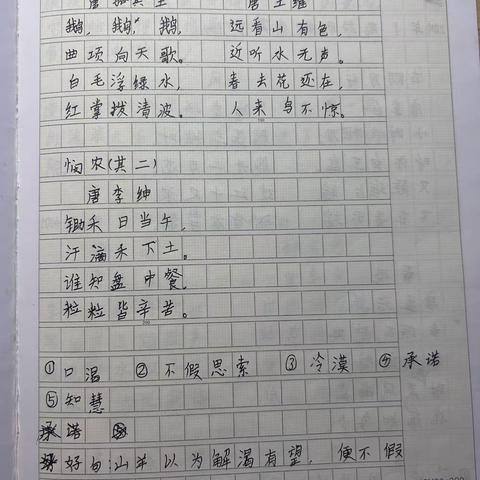 唐 王维
鹅，鹅，鹅， 远看山有色，
曲项向天歌。 近听水无声。
白毛浮绿水， 春去花还在，
红掌拨清波。 人来鸟不惊。
悯农(其二)
唐 李绅
锄禾日当午，
汗滴禾下土。
谁知盘中餐，
粒粒皆辛苦。
200
①口渴 ②不假思索 ③冷漠 ④承诺
⑤知慧
承诺
好句:山羊以为解渴有望，便不假